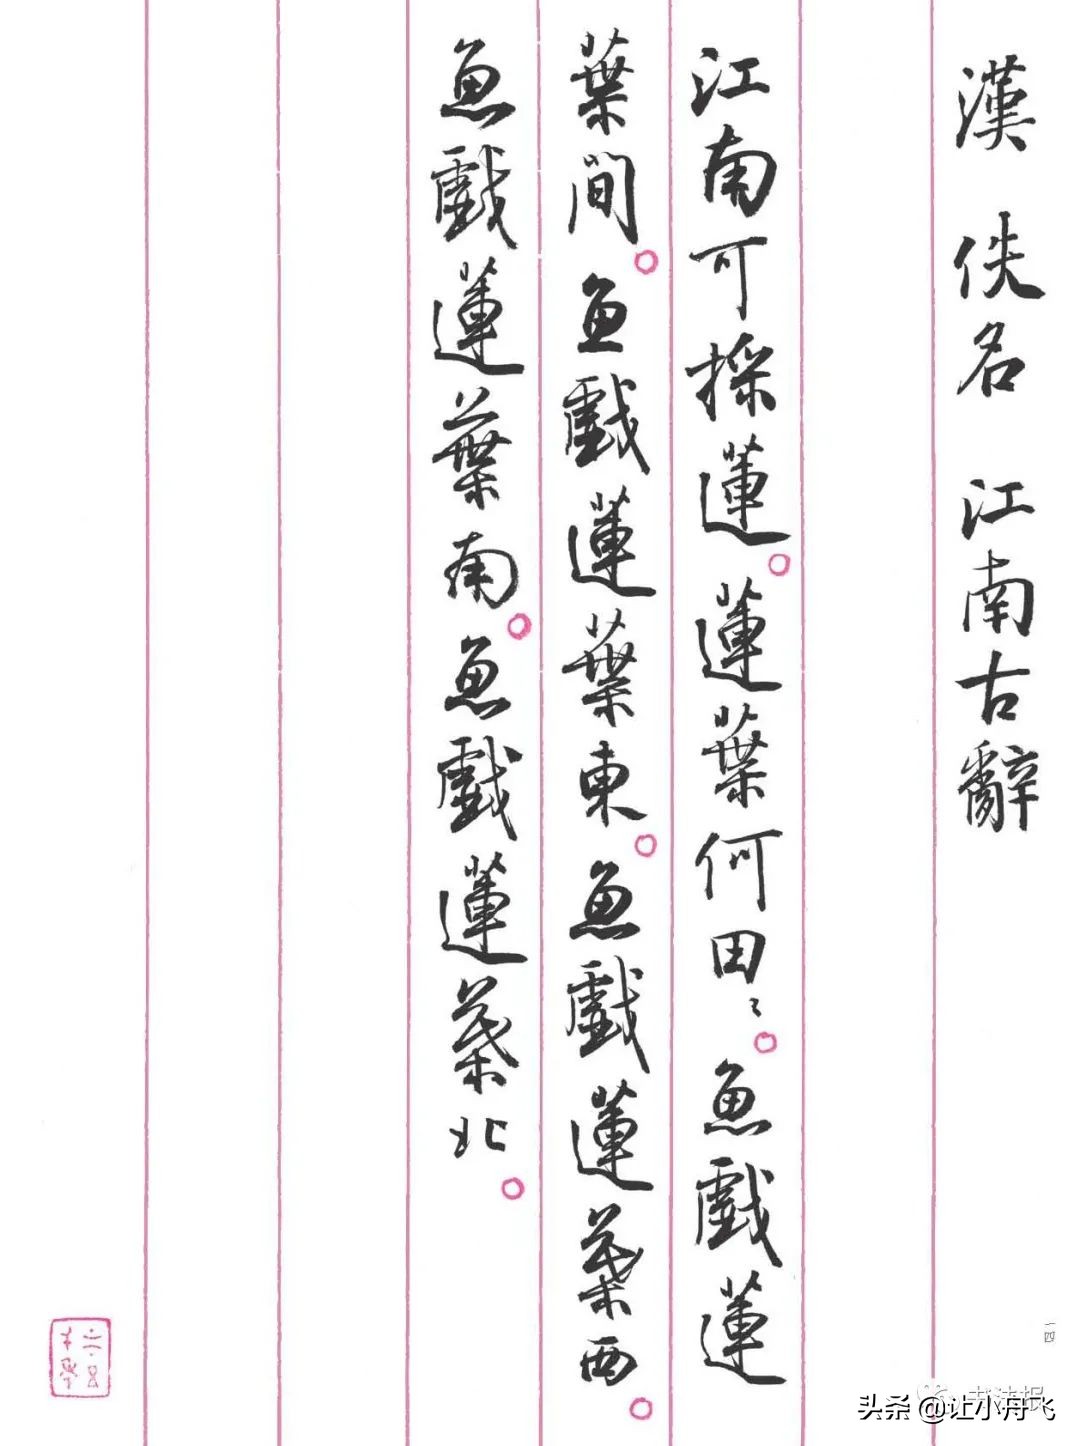 漢 佚名 江南古辭
江南可採蓮。蓮葉何田〻。魚戲蓮
葉間。魚戲蓮葉東。魚戲蓮葉西。
魚戲蓮葉南。魚戲蓮葉北。
一四
书法报
头条 @让小丹飞